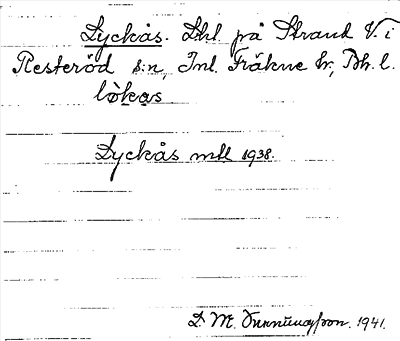 Lyckås. Lht. på Strand V. i
Resteröd s:n, Inl. Fräkne hr, Bh. l.
lòkas
Lyckås mtl 1938.
D. M. 1941.